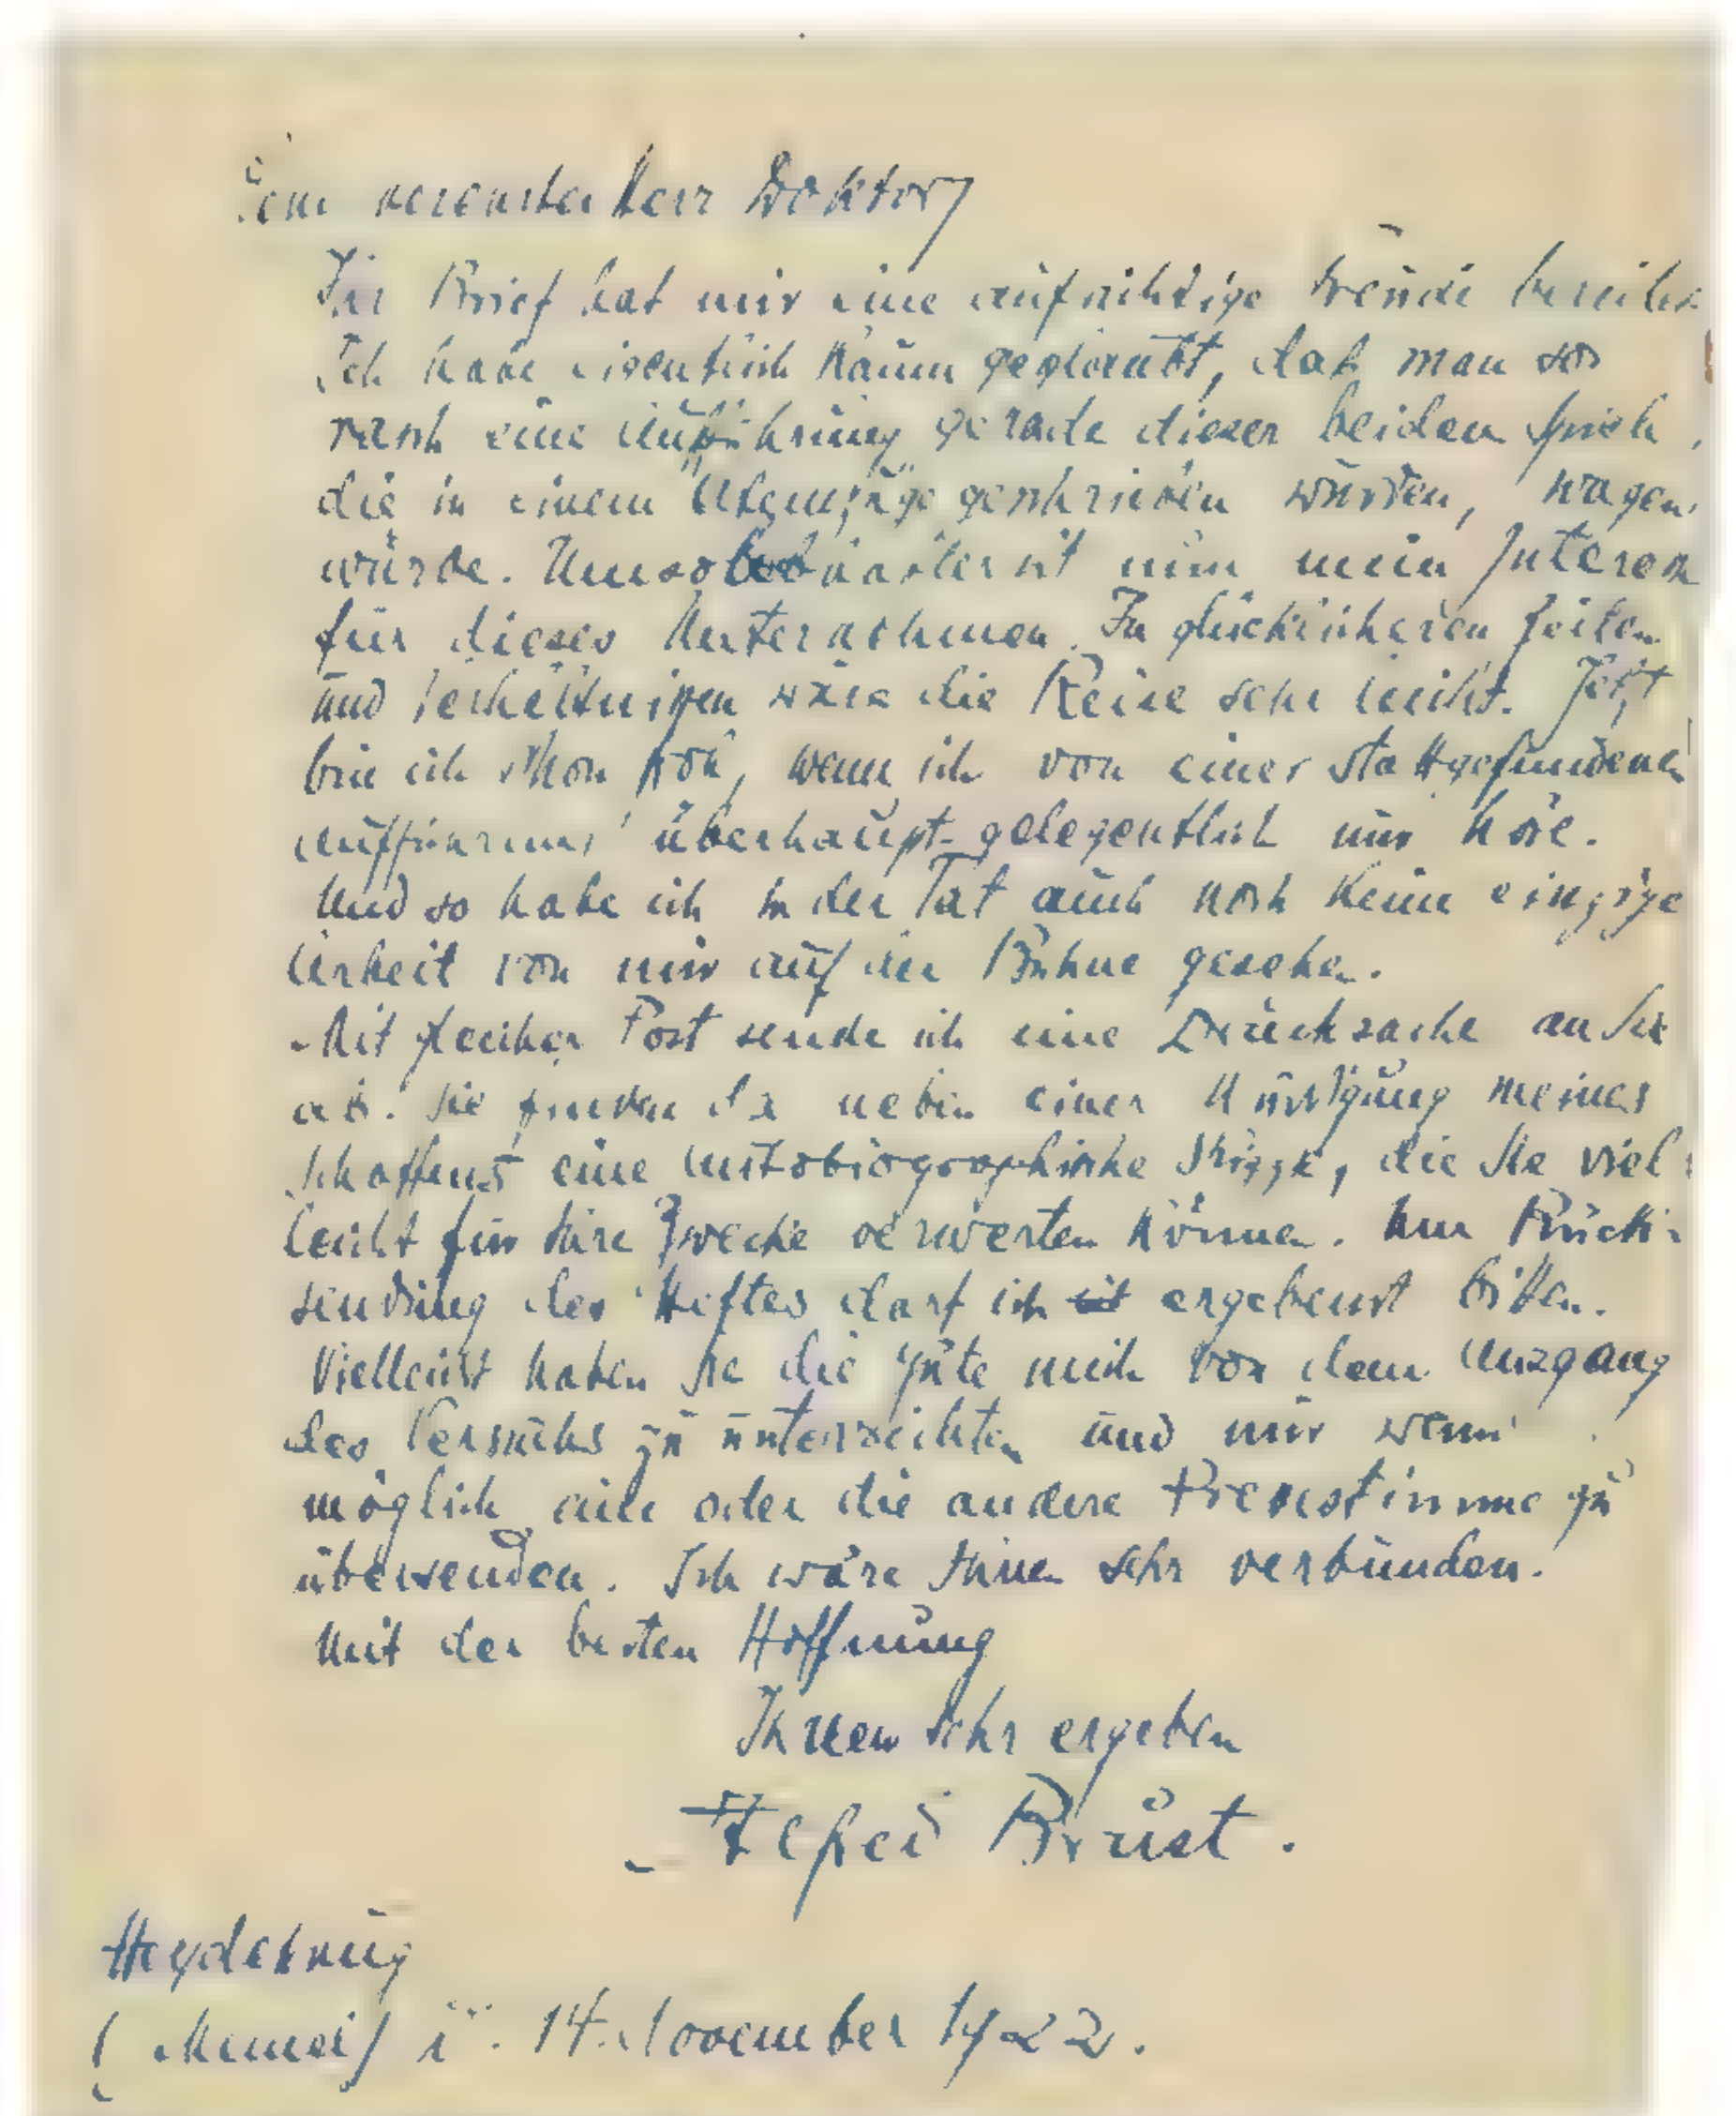 Sehr verehrter Herr Doktor,
Ihr Brief hat mir eine aufrichtige Freude bereitet.
Ich habe eigentlich kaum geglaubt, daß man so
rasch eine Aufführung gerade dieser beiden Spiele,
die in einem Atemzuge geschrieben wurden, wagen
würde. Umso ist nun mein Interesse
für dieses Unternehmen. In glücklicheren Zeiten
und Verhältnissen wäre die Reise sehr leicht. Jetzt
bin ich schon froh, wenn ich von einer stattgefundenen
Aufführung überhaupt gelegentlich nur höre.
Und so habe ich in der Tat auch noch keine einzige
Arbeit von mir auf der Bühne gesehen.
Mit gleicher Post sende ich eine Drucksache an Sie
ab. Sie finden da neben einer Würdigung meines
Schaffens eine autobiographische Skizze, die Sie viel-
leicht für Ihre Zwecke verwerten können. Um Rück-
sendung des Heftes darf ich ergebenst bitten.
Vielleicht haben Sie die Güte mich von dem Ausgang
des Versuchs zu unterrichten und mir wenn
möglich eine oder die andere Pressestimme zu
übersenden. Ich wäre Ihnen sehr verbunden.
Mit der besten Hoffnung
Ihnen sehr ergeben
Alfred Brust.
Heydekrug
(Memel) 14. November 1922.